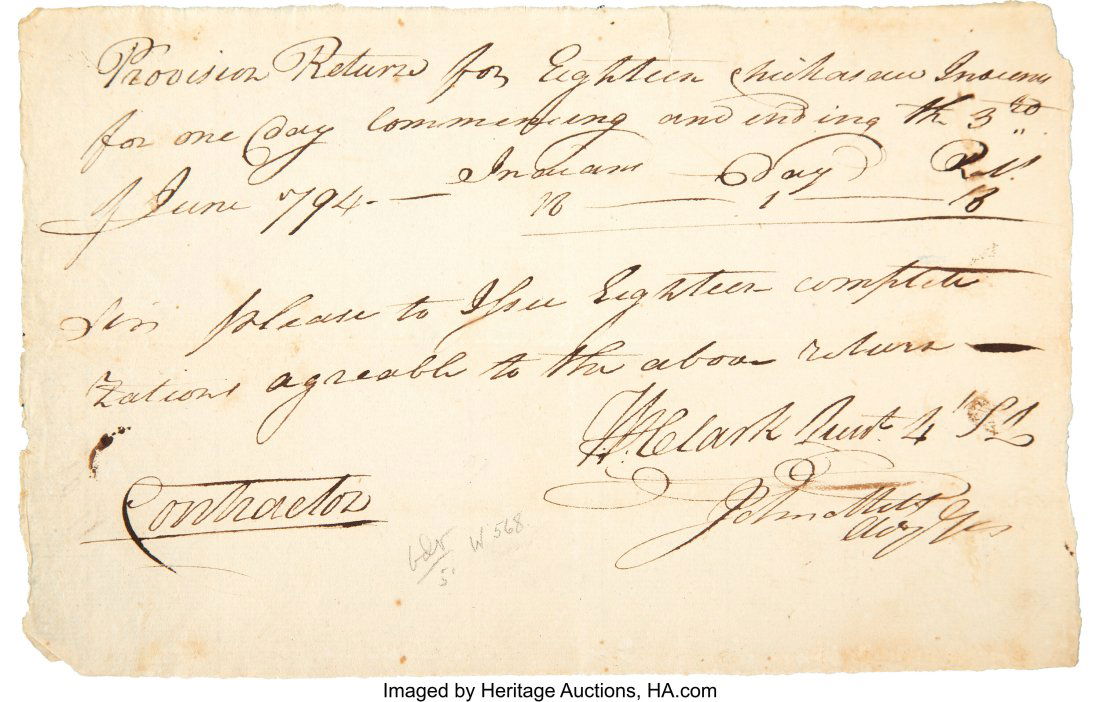 Provision Return for Eighteen Chickasaw Indians
for one Day Commencing and ending th 3rd
of June 794 — Indians — Day Rats.
18 — 1 — 18
Sir please to Issue Eighteen complete
rations agreable to the above return —
W. Clark Lieut. 4 S L
Contractor
John
W 568
Imaged by Heritage Auctions, HA.com